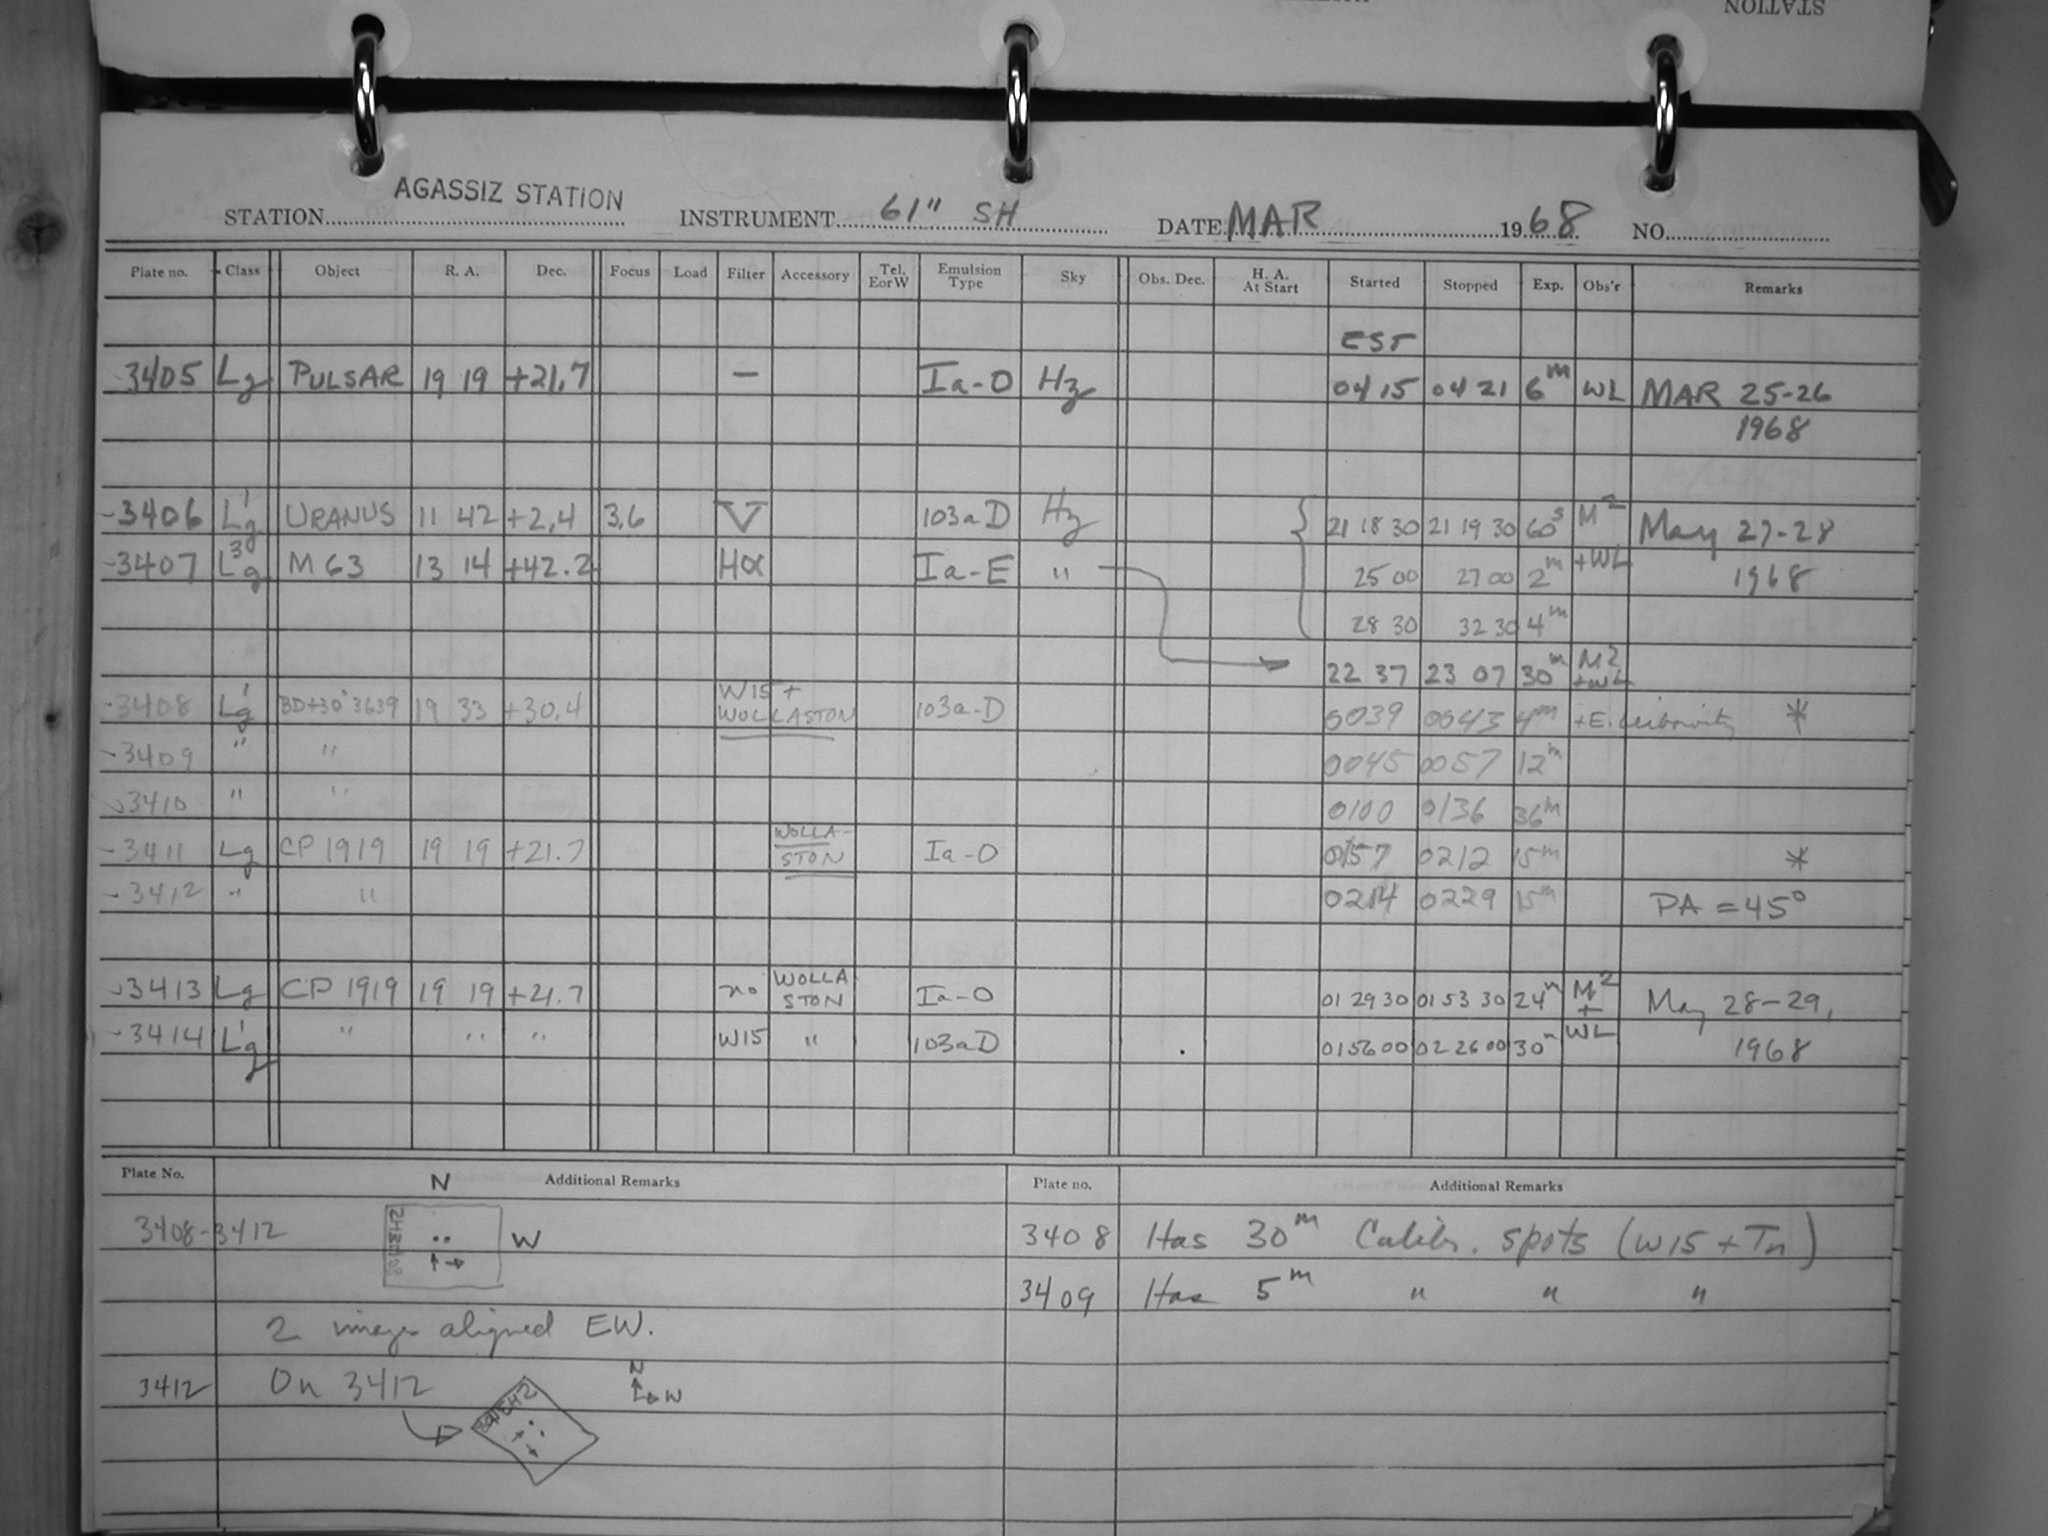 STATION
AGASSIZ STATION
STATION INSTRUMENT 61" SH DATE MAR 1968 NO.
Plate no. Class Object R. A. Dec. Focus Load Filter Accessory Tel. EorW Emulsion Type Sky Obs. Dec. H. A. At Start Started Stopped Exp. Obs'r Remarks
EST
3405 Lg PULSAR 19 19 +21.7 — Ia-O Hz 04 15 04 21 6m WL MAR 25-26
1968
3406 L'g URANUS 11 42 +2.4 3.6 V 103aD Hz 21 18 30 21 19 30 60s M2 May 27-28
3407 L3g M 63 13 14 +42.2 Hα Ia-E " 25 00 27 00 2m +WL 1968
28 30 32 30 4m
22 37 23 07 30m M2 +WL
3408 L'g BD+30°3639 19 33 +30.4 W15 + WOLLASTON 103a-D 0039 0043 4m + E. Leibowitz *
3409 " " 0045 0057 12m
3410 " " 0100 0136 36m
3411 Lg CP 1919 19 19 +21.7 WOLLA-STON Ia-O 0157 0212 15m *
3412 " " 0214 0229 15m PA = 45°
3413 Lg CP 1919 19 19 +21.7 no WOLLASTON Ia-O 01 29 30 01 53 30 24m M2 + May 28-29,
3414 L'g " " " W15 " 103aD 01 56 00 02 26 00 30m WL 1968
Plate No. Additional Remarks Plate no. Additional Remarks
N
3408-3412 W
3408 Has 30m Calibr. spots (W15 + Tn)
3409 Has 5m " " "
2 images aligned EW.
3412 On 3412
N
W